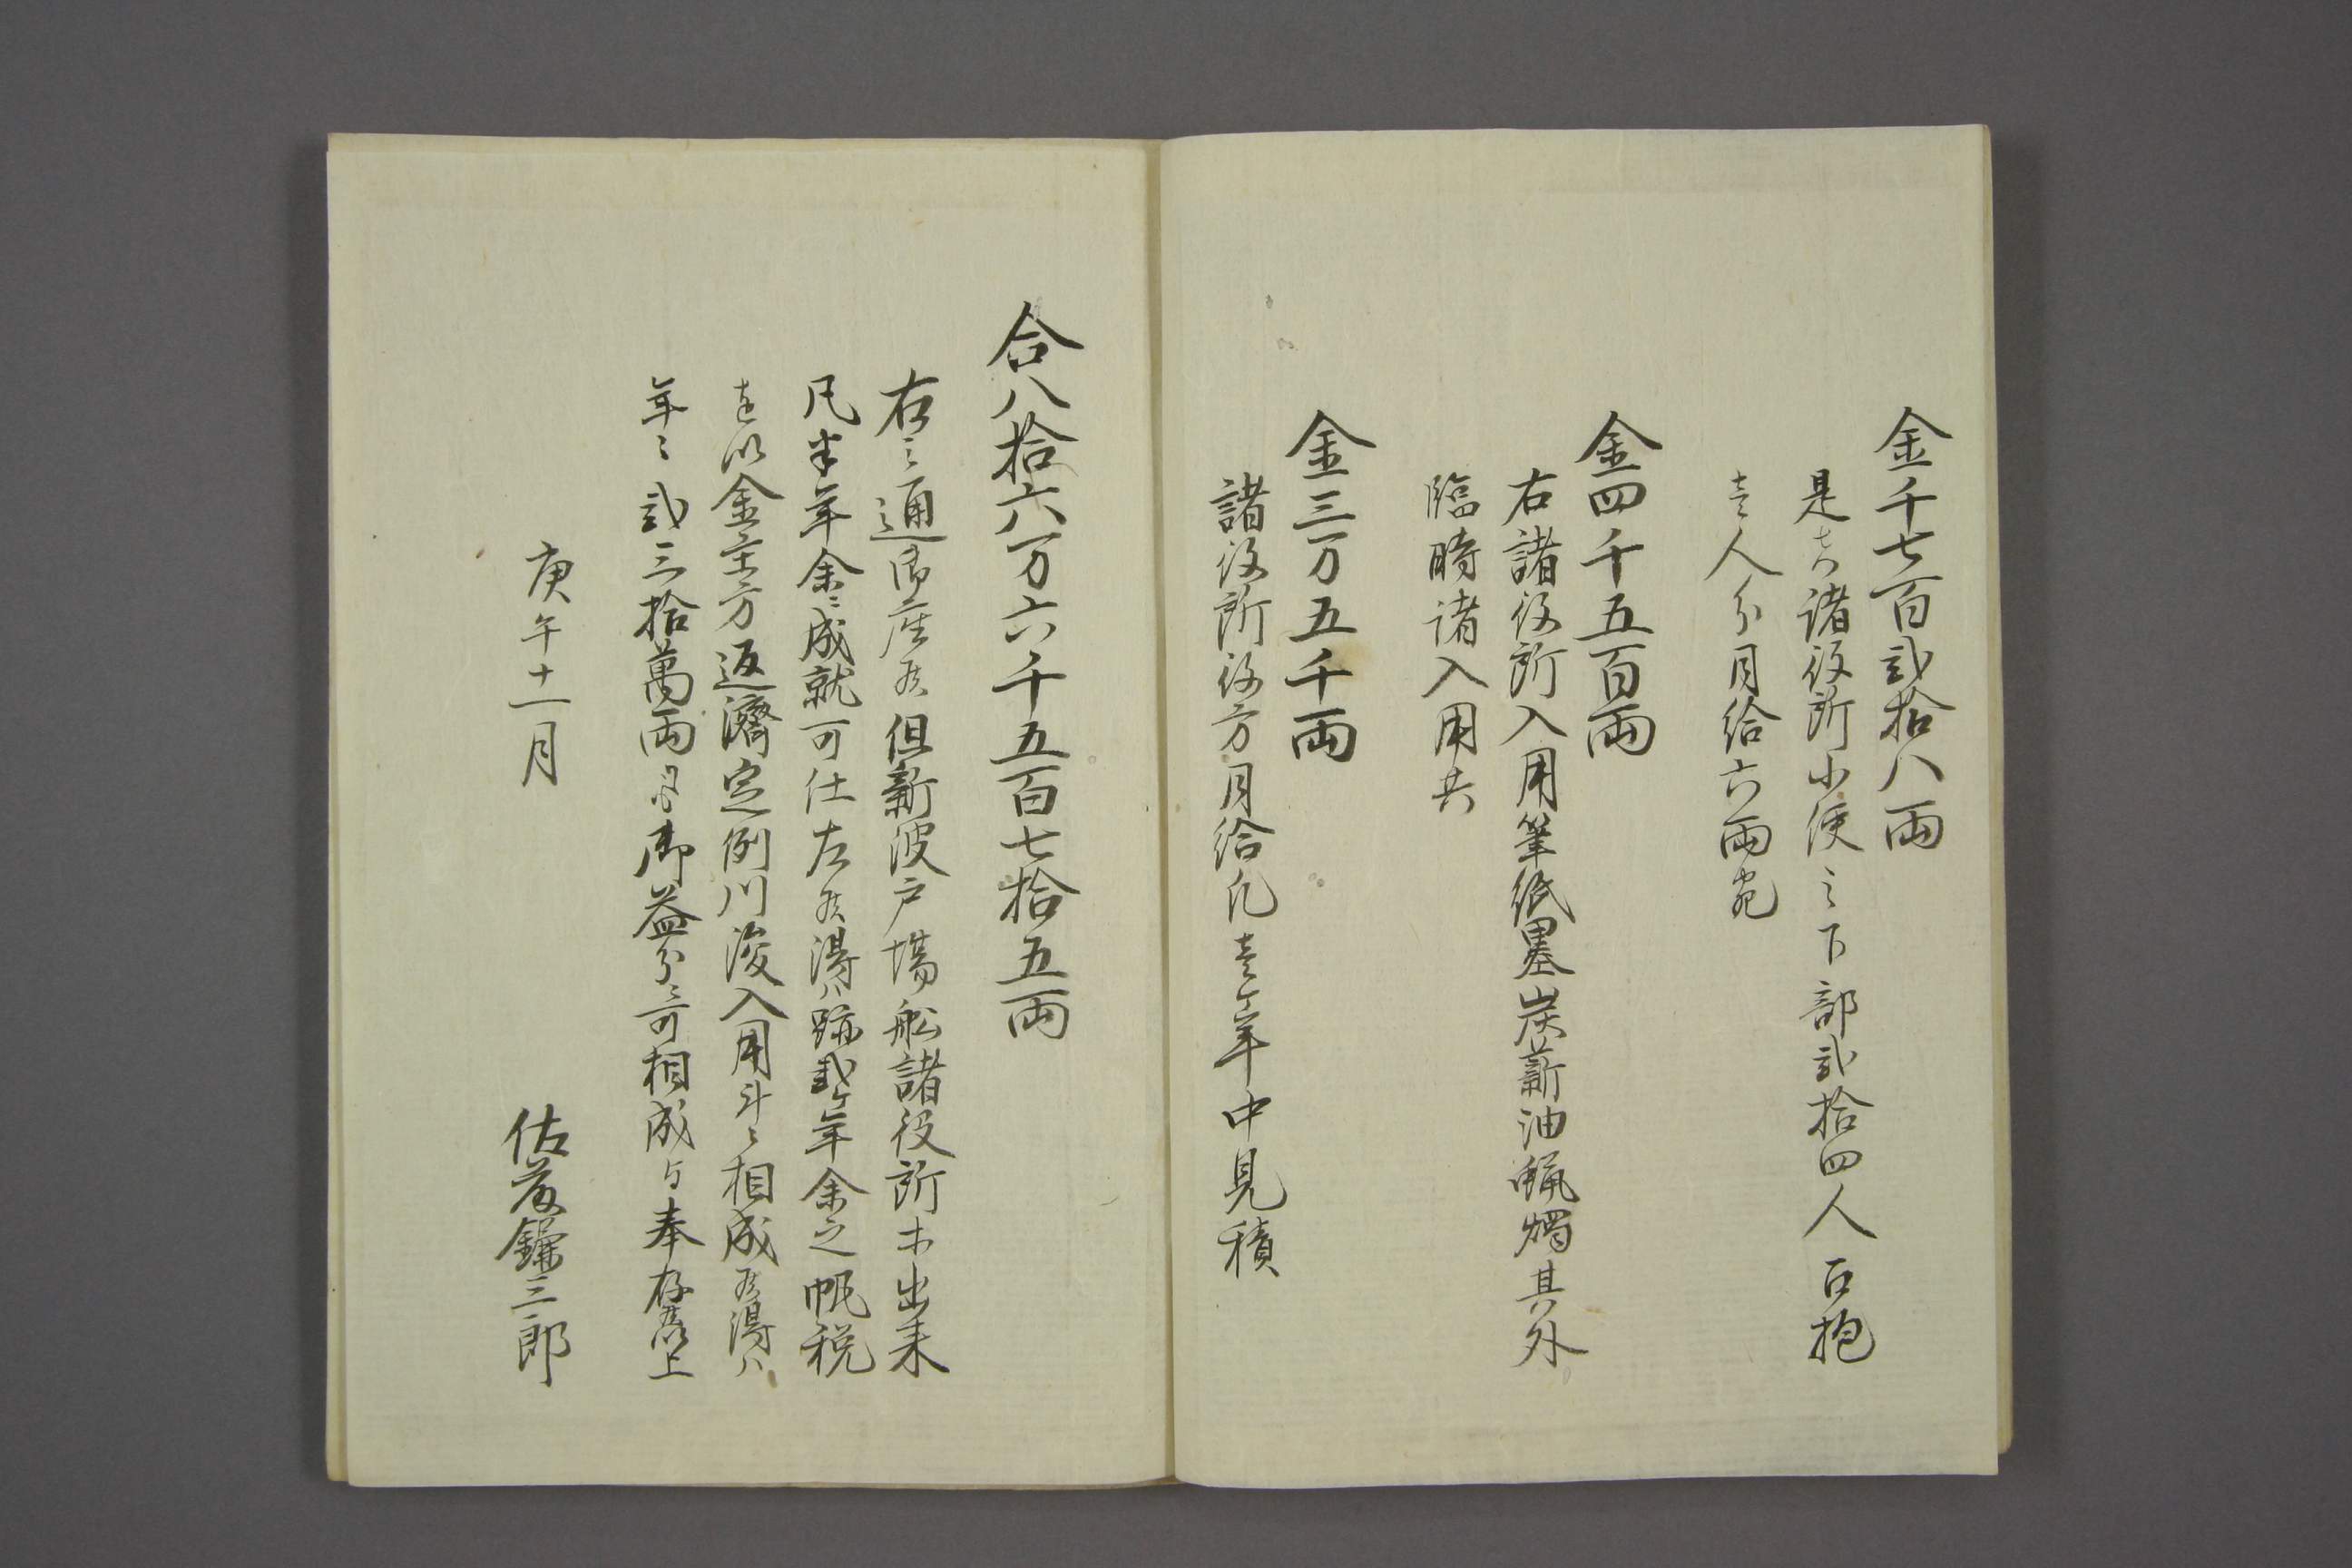 金千七百弐拾八両
是者諸役所小使之下部弐拾四人召抱
壱人分月給六両宛
金四千五百両
右諸役所入用筆紙墨炭薪油蝋燭其外
臨時諸入用共
金三万五千両
諸役所役方月給凡壱ヶ年中見積
合八拾六万六千五百七拾五両
右之通御座候但新波戸場船諸役所出来
凡半年余ニ成就可仕左候得ハ跡弐ヶ年余之帆税
を以金主方返濟定例川浚入用斗ニ相成候得ハ
年々弐三拾萬両御益分ニ可相成与奉存候以上
庚午十一月
佐藤鎌三郎